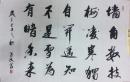 墙角数枝
梅凌寒独
自开遥知
不是雪为
有暗香来